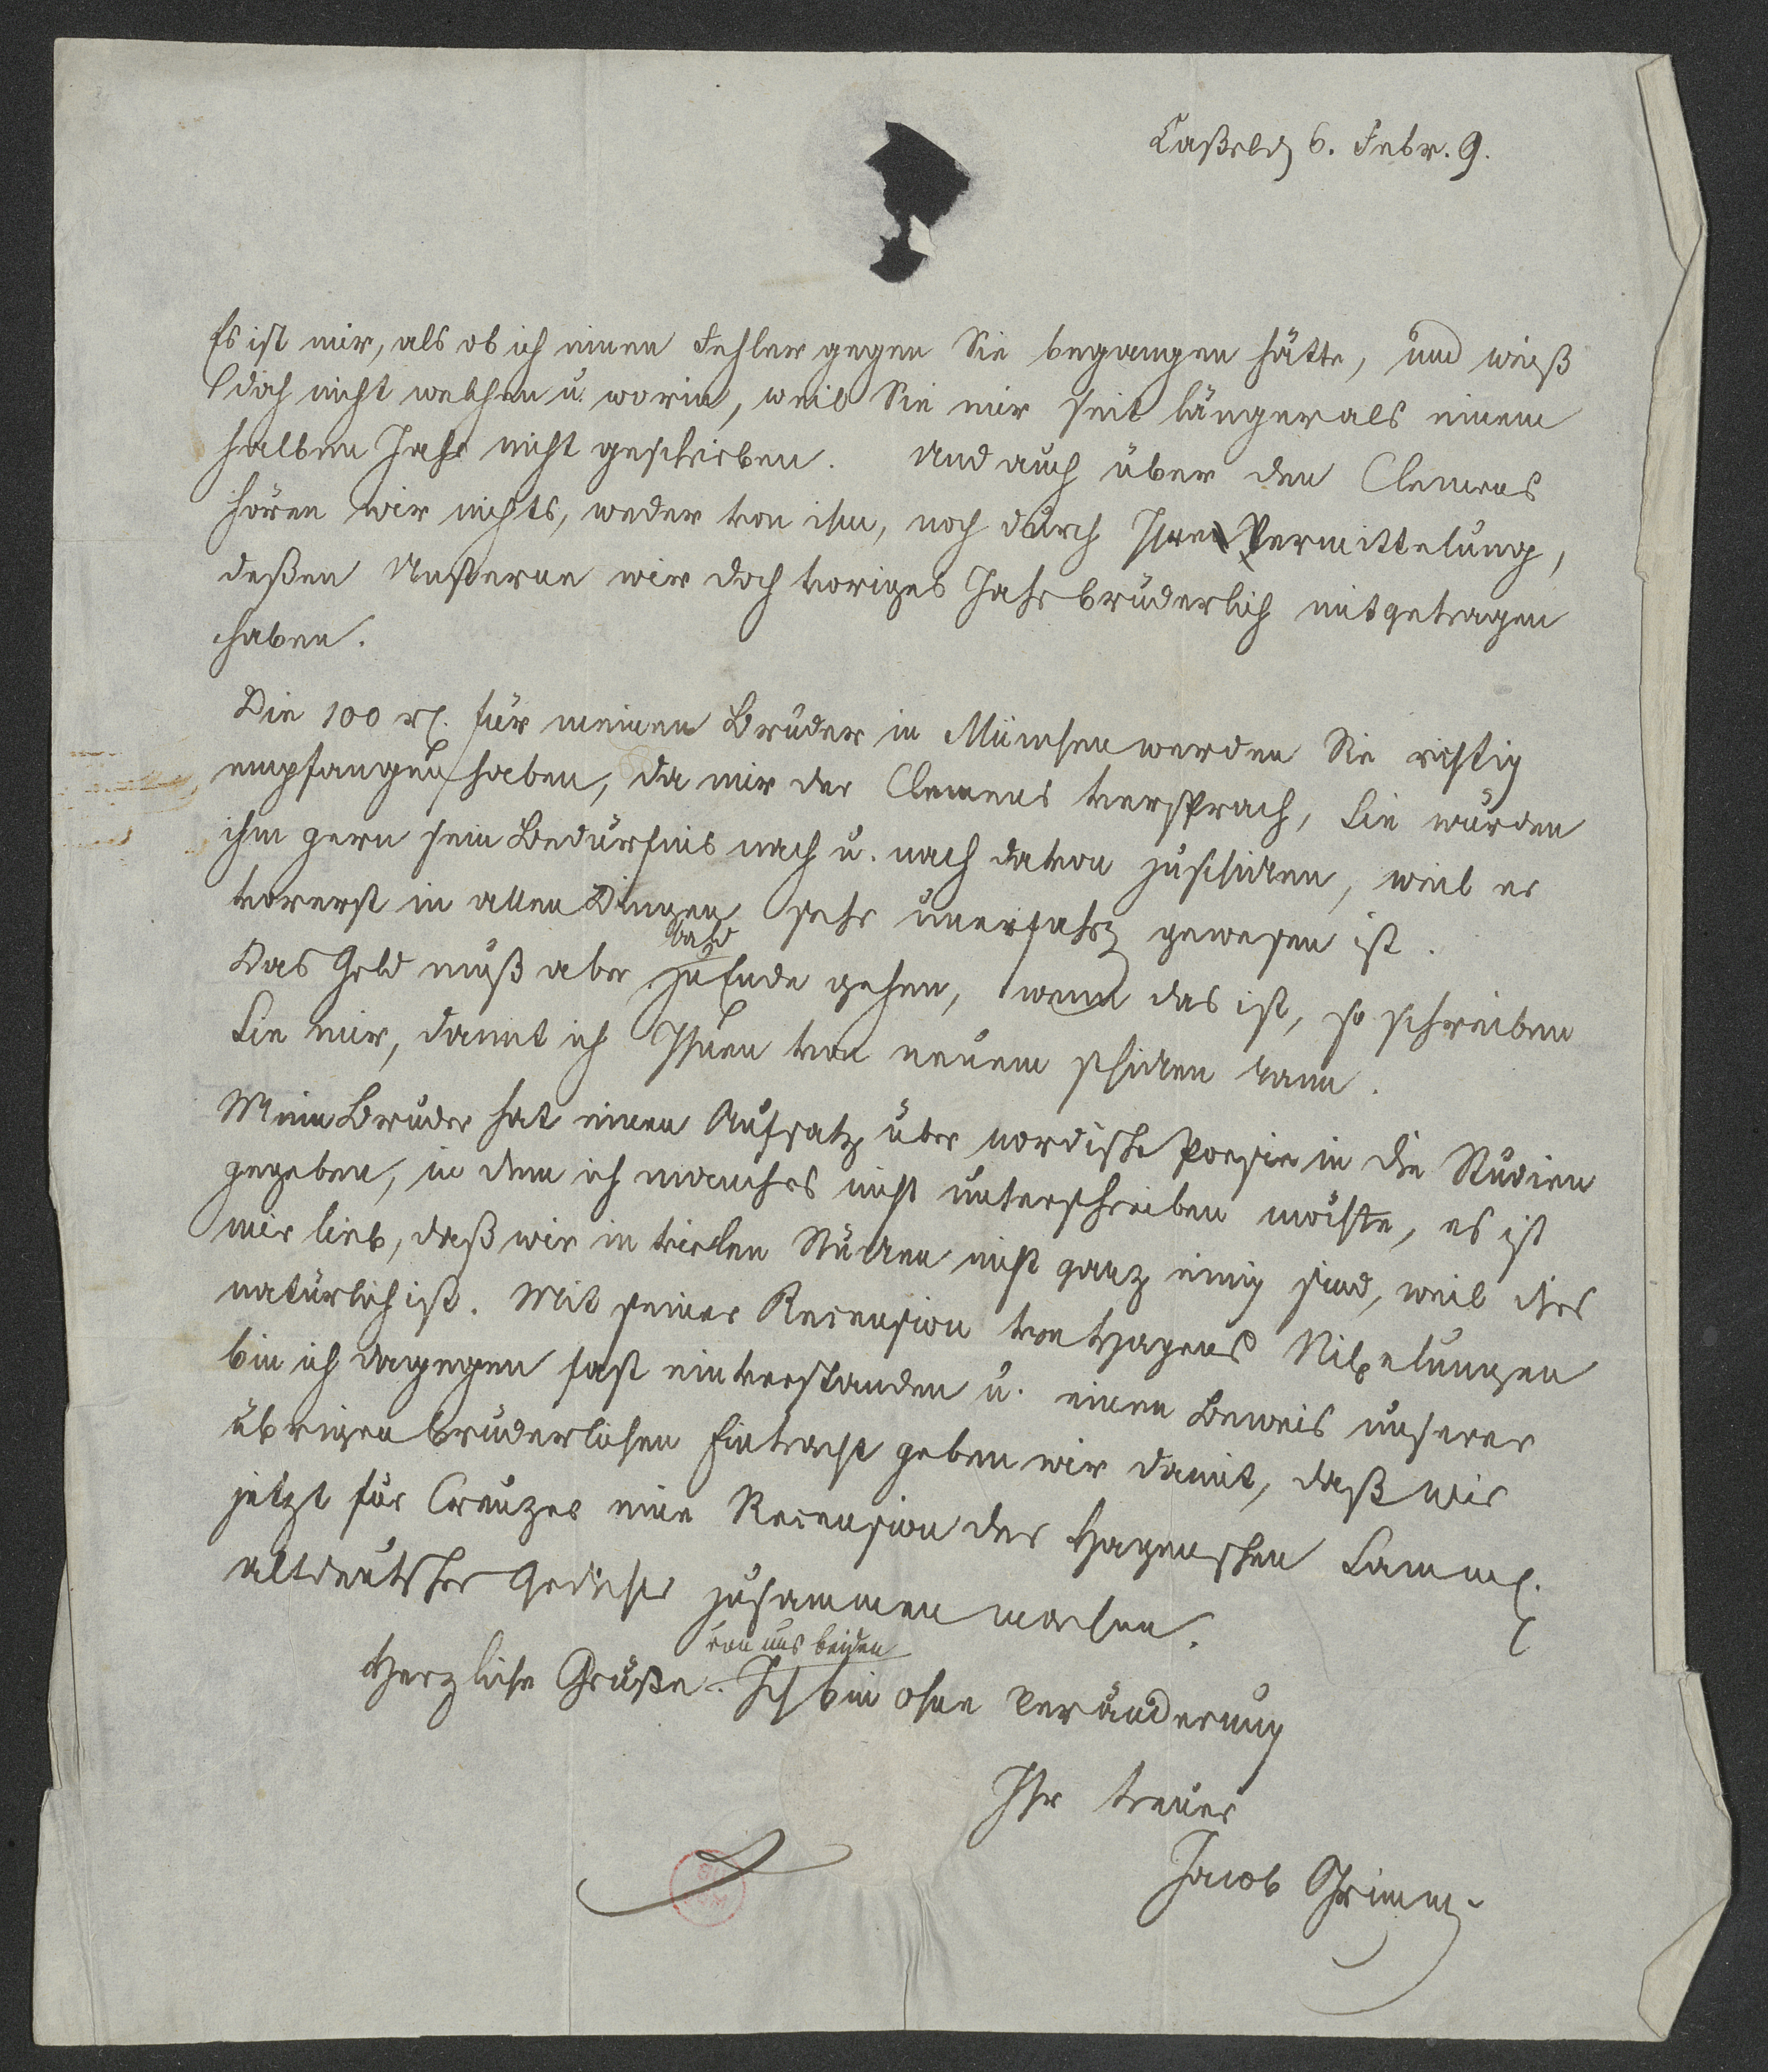 Caßel d 6. Febr. 9.
Es ist mir, als ob ich einen Fehler gegen Sie begangen hätte, und weiß
doch nicht welchen u. worin, weil Sie mir seit länger als einem
halben Jahr nicht geschrieben. Und auch über den Clemens
hören wir nichts, weder von ihm, noch durch Ihre Vermittelung,
deßen Unsterne wir doch voriges Jahr brüderlich mitgetragen
haben.
Die 100 rl. für meinen Bruder in München werden Sie richtig
empfangen haben, da mir der Clemens versprach, Sie würden
ihm gern sein Bedürfnis nach u. nach davon zuschicken, weil er
vorerst in allen Dingen sehr unerfahr. gewesen ist.
Das Geld muß aber bald zu Ende gehen, wenn das ist, so schreiben
Sie mir, damit ich Ihnen von neuem schicken kann.
Mein Bruder hat einen Aufsatz über nordische Poesie in die Studien
gegeben, in dem ich manches nicht unterschreiben möchte, es ist
mir lieb, daß wir in vielen Stücken nicht ganz einig sind, weil dies
natürlich ist. Mit seiner Recension von Hagens Nibelungen
bin ich dagegen fast einverstanden u. einen Beweis unserer
übrigen brüderlichen Eintracht geben wir damit, daß wir
jetzt für Creuzer eine Recension der Hagenschen Samml.
altdeutscher Gedichte zusammen machen.
Herzliche Grüße von uns beiden. Ich bin ohne Veränderung
Ihr treuer
Jacob Grimm.